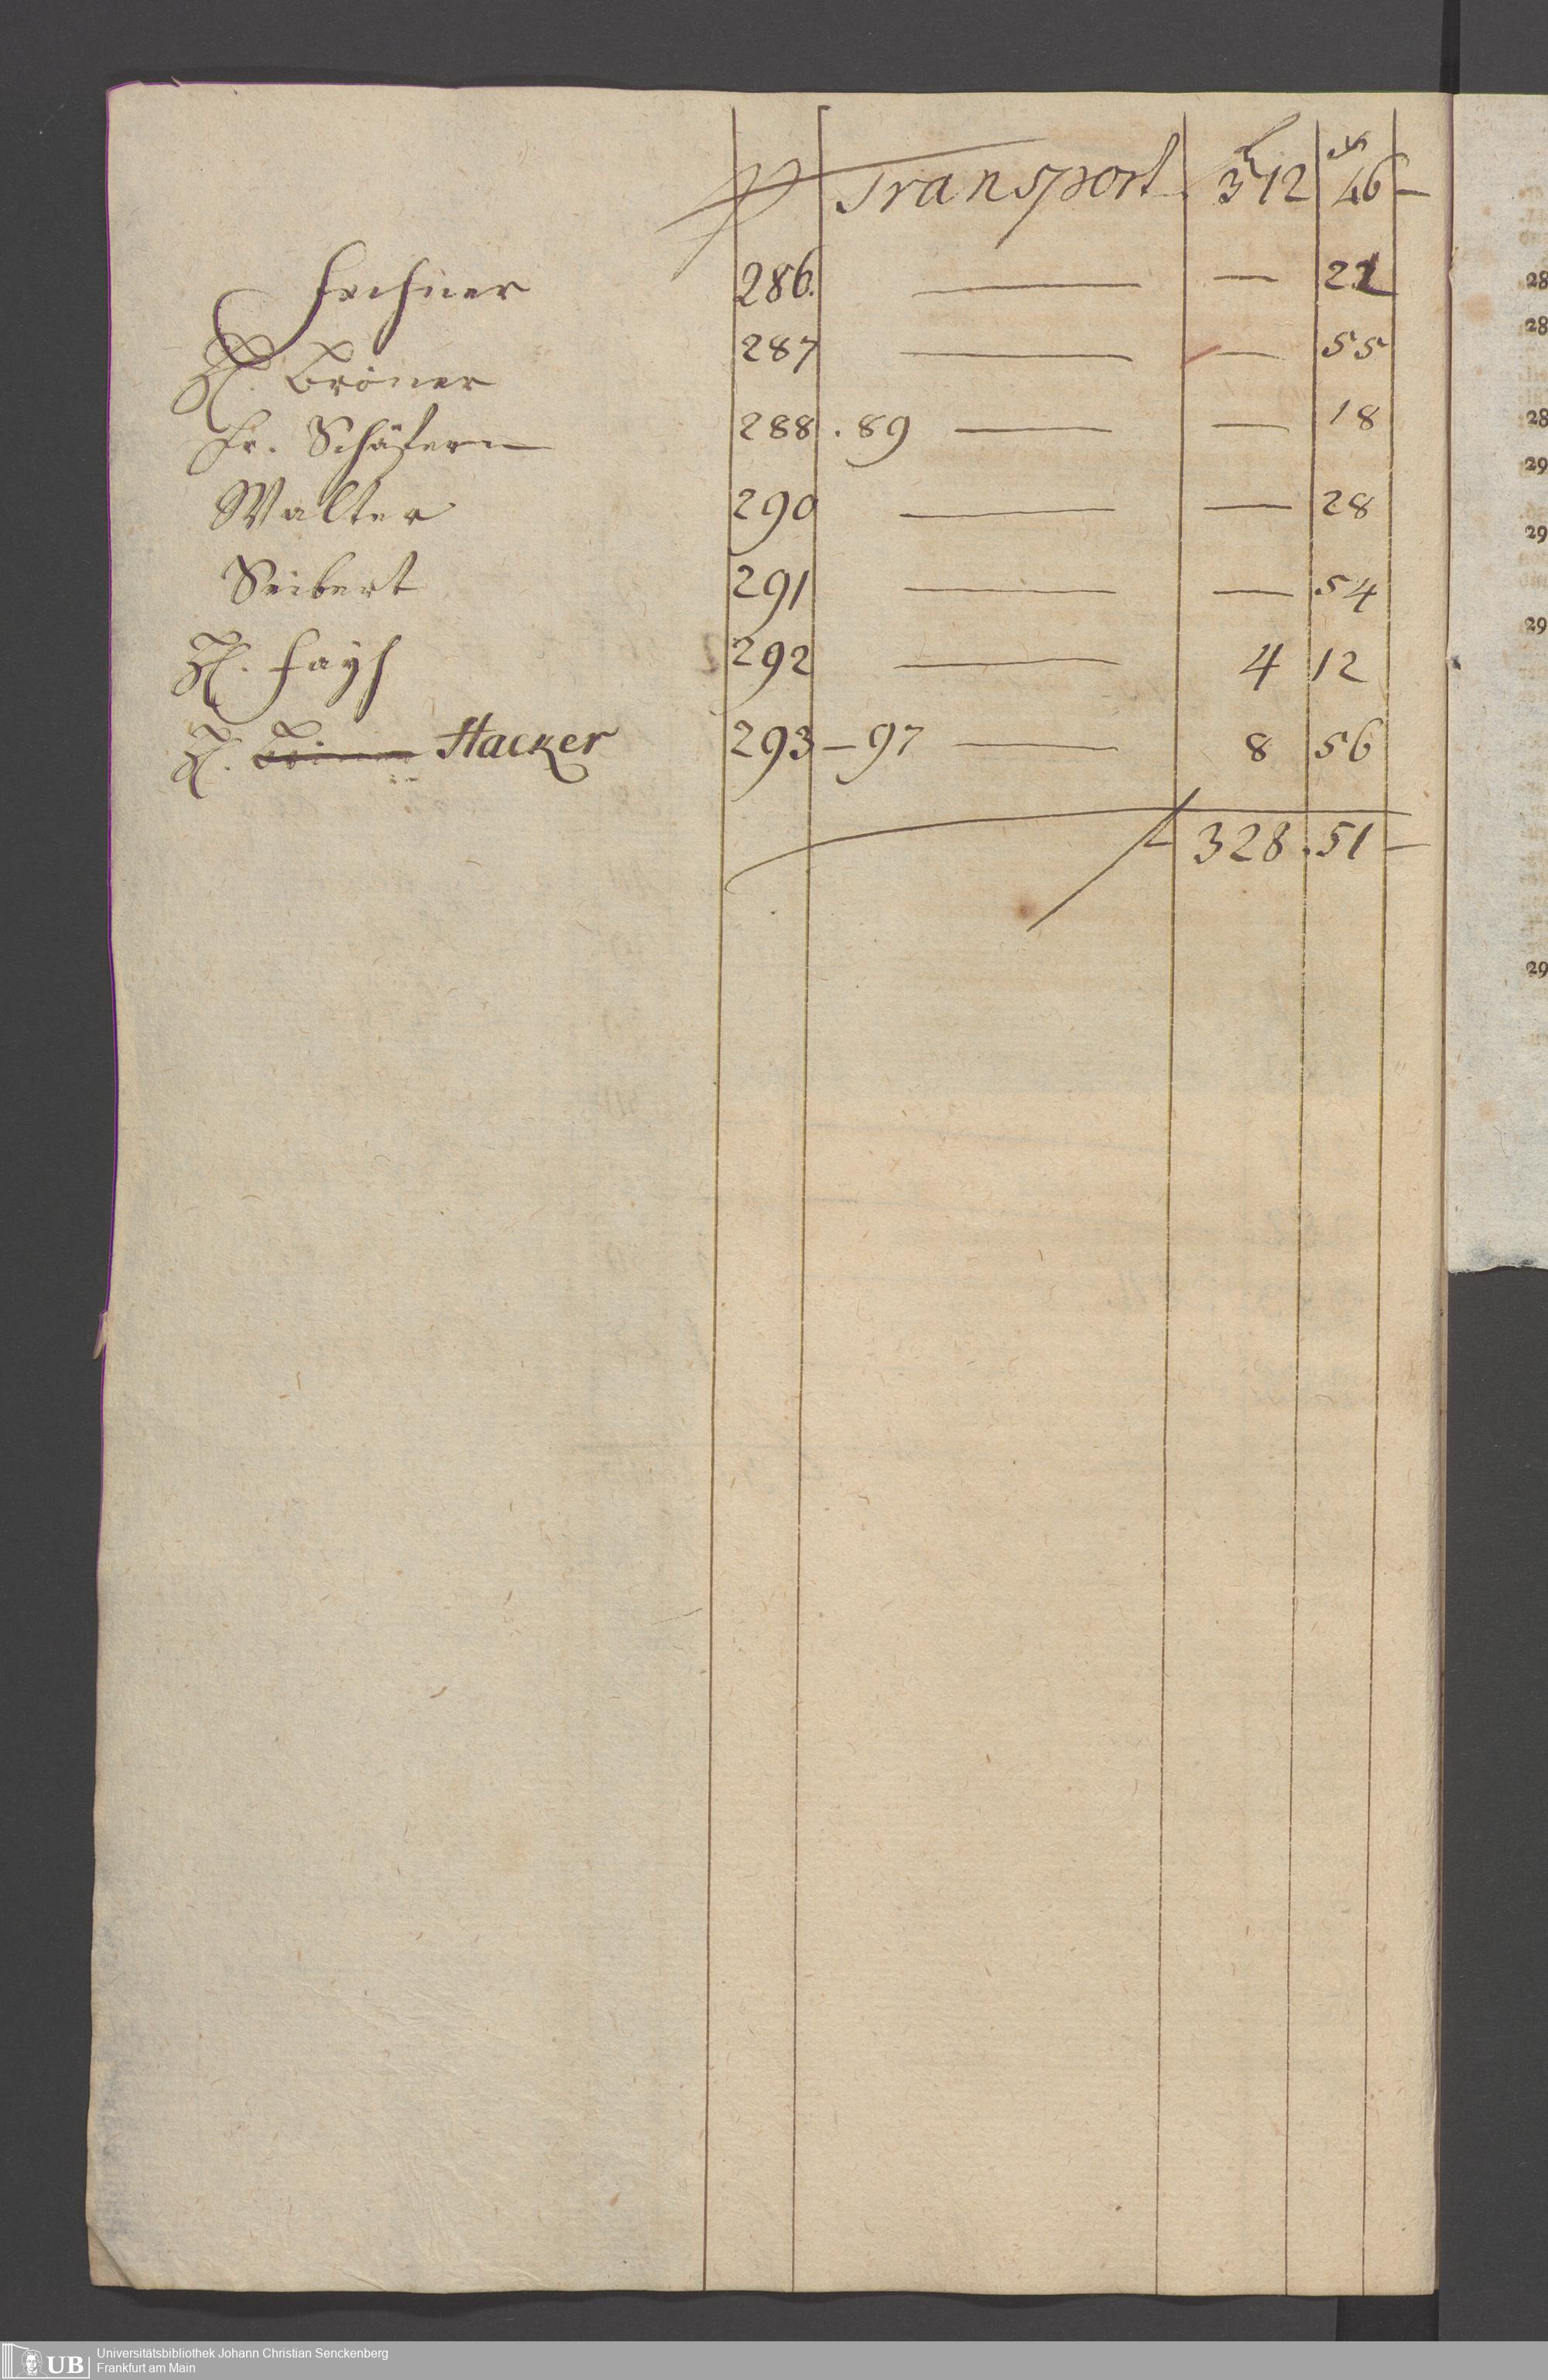 Transport 312 46 —
Fechner 286. — — 22
H. Bröner 287 — — 55
Fr. Schäfern 288 . 89 — — 18
Walter 290 — — 28
Seibert 291 — — 54
H. Fayh 292 — 4 12
H. Hacker 293 — 97 — 8 56
328 . 51 —
28
28
28
29
29
29
29
UB Universitätsbibliothek Johann Christian Senckenberg
Frankfurt am Main